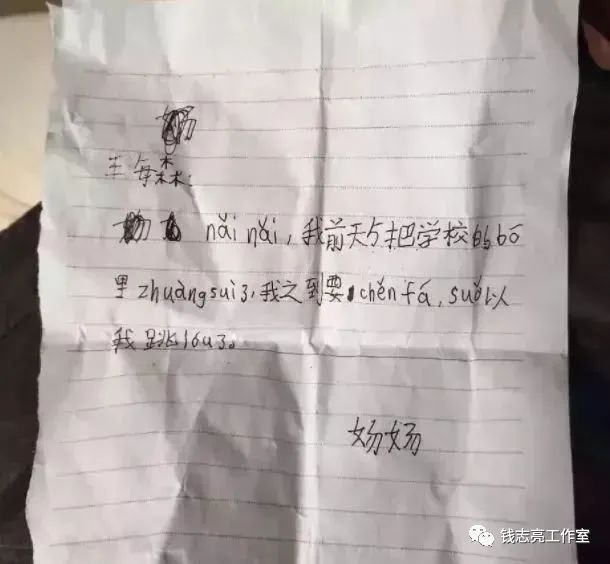 王每森:
nǎi nǎi,我前天把学校的bō
里zhuàng suì了,我之到要chěn fá,suǒ以
我跳lóu了。
钱志亮工作室